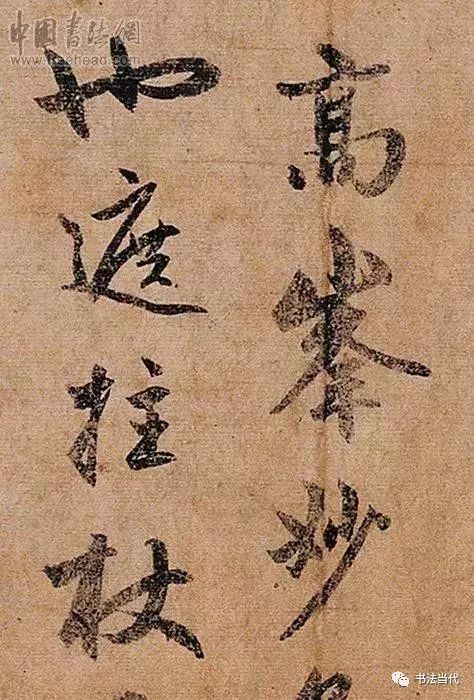 高峯妙
也遮拄杖
中国书法网
www.freehead.com
书法当代